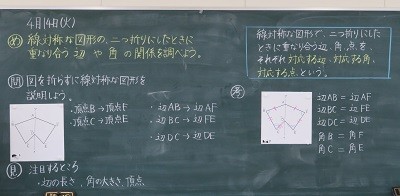 4月14日(火)
め 線対称な図形の、二つ折りにしたときに
重なり合う辺や角の関係を調べよう。
問 図を折らずに線対称な図形を
説明しよう。
・頂点B→頂点F
・頂点C→頂点E
・辺AB→辺AF
・辺BC→辺FE
・辺DC→辺DE
見 注目するところ
・辺の長さ、角の大きさ、頂点
線対称な図形で、二つ折りにした
ときに重なり合う辺、角、点を、
それぞれ対応する辺、対応する角、
対応する点という。
考
辺AB=辺AF
辺BC=辺FE
辺DC=辺DE
角B=角F
角C=角E